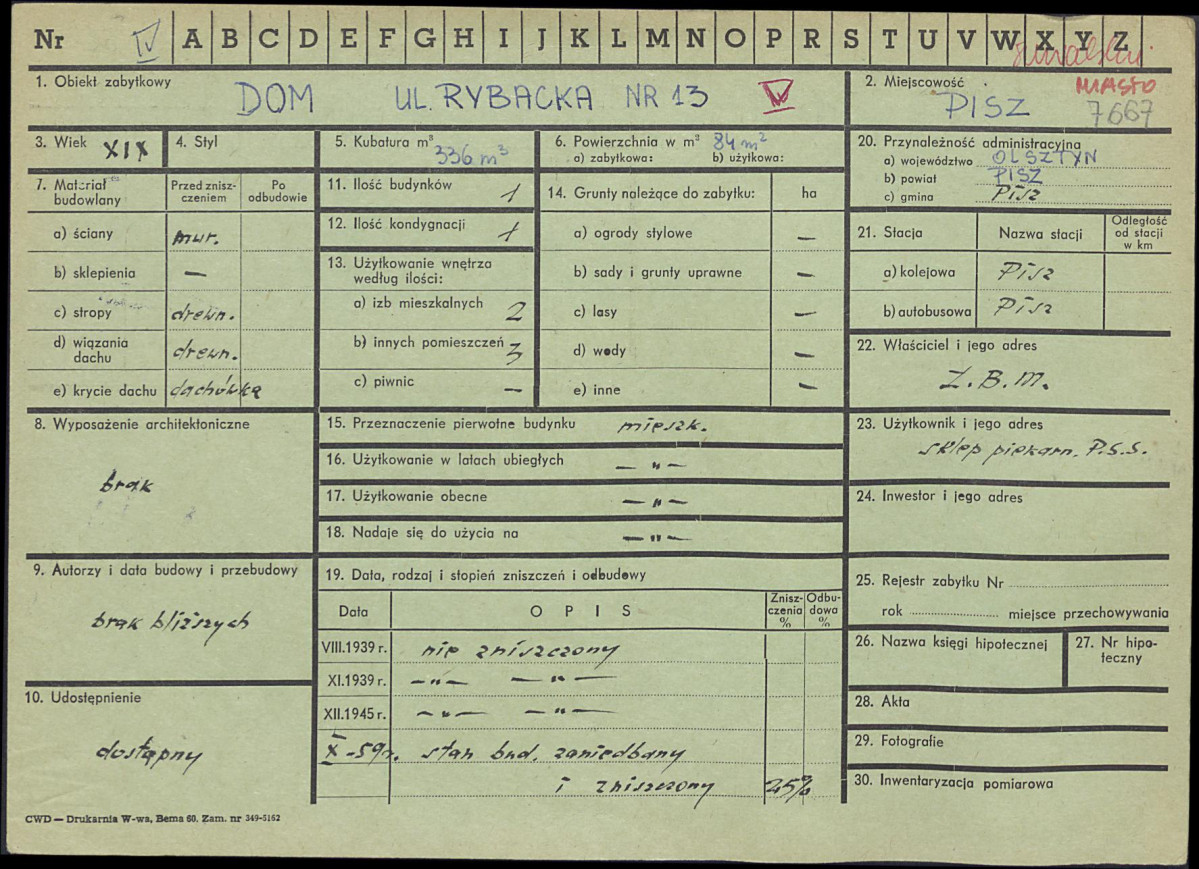 Nr IV A B C D E F G H I J K L M N O P R S T U V W X Y Z
suwalski
1. Obiekt zabytkowy
DOM UL. RYBACKA NR 13 IV
2. Miejscowość MIASTO
PISZ 7667
3. Wiek XIX
4. Styl
5. Kubatura m³
336 m³
6. Powierzchnia w m² 84 m²
a) zabytkowa: b) użytkowa:
20. Przynależność administracyjna
a) województwo OLSZTYN
b) powiat PISZ
c) gmina Pisz
7. Materiał budowlany
Przed zniszczeniem
Po odbudowie
a) ściany mur.
b) sklepienia —
c) stropy drewn.
d) wiązania dachu drewn.
e) krycie dachu dachówka
11. Ilość budynków 1
12. Ilość kondygnacji 1
13. Użytkowanie wnętrza
według ilości:
a) izb mieszkalnych 2
b) innych pomieszczeń 3
c) piwnic —
14. Grunty należące do zabytku: ha
a) ogrody stylowe —
b) sady i grunty uprawne —
c) lasy —
d) wody —
e) inne —
21. Stacja
Nazwa stacji
Odległość
od stacji
w km
a) kolejowa Pisz
b) autobusowa Pisz
22. Właściciel i jego adres
Z.B.M.
8. Wyposażenie architektoniczne
brak
15. Przeznaczenie pierwotne budynku mieszk.
16. Użytkowanie w latach ubiegłych — „ —
17. Użytkowanie obecne — „ —
18. Nadaje się do użycia na — „ —
23. Użytkownik i jego adres
sklep piekarn. P.S.S.
24. Inwestor i jego adres
9. Autorzy i data budowy i przebudowy
brak bliższych
10. Udostępnienie
dostępny
19. Data, rodzaj i stopień zniszczeń i odbudowy
Data
OPIS
Znisz-
czenia
%
Odbu-
dowa
%
VIII.1939 r. nie zniszczony
XI.1939 r. — „ — — „ —
XII.1945 r. — „ — — „ —
X-59r. stan bud. zaniedbany
i zniszczony 25%
25. Rejestr zabytku Nr
rok miejsce przechowywania
26. Nazwa księgi hipotecznej
27. Nr hipo-
teczny
28. Akta
29. Fotografie
30. Inwentaryzacja pomiarowa
CWD — Drukarnia W-wa, Bema 60. Zam. nr 349-5162